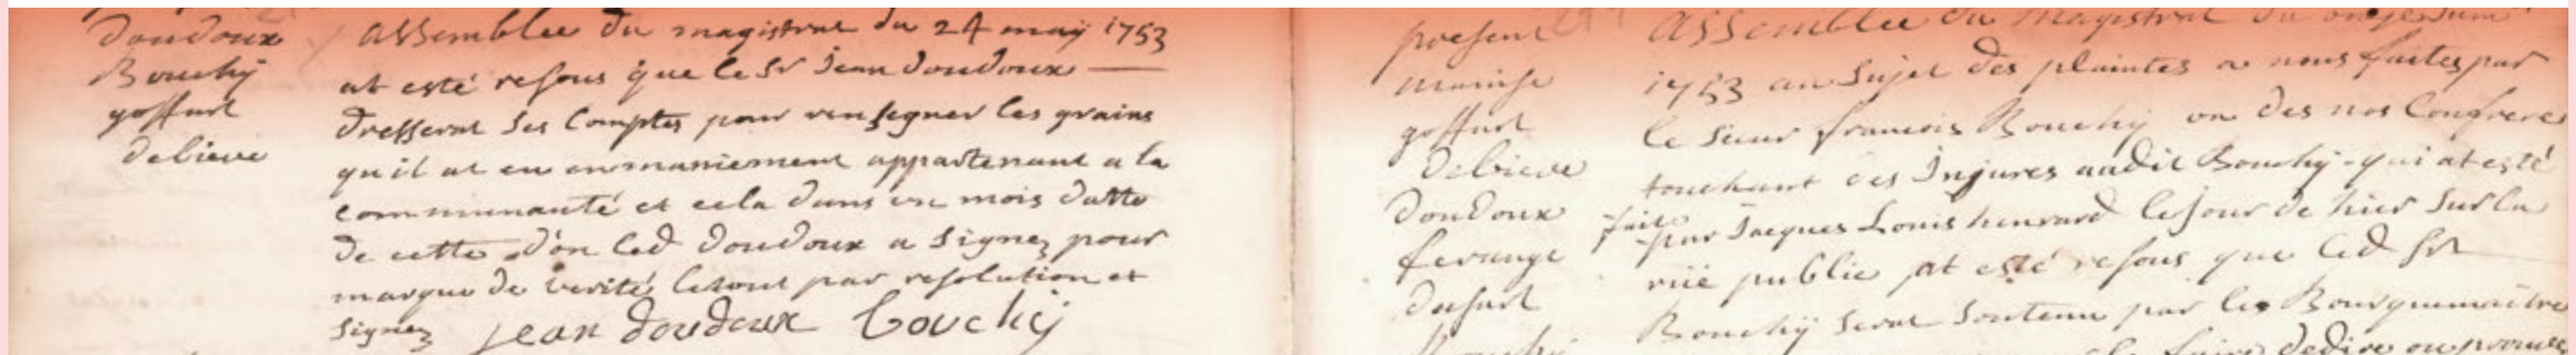 Doudoux
Bouchÿ
goffart
Debieve
assemblee du magistrat du 24 maÿ 1753
at esté resous que le Sr Jean Doudoux
dresserat ses Comptes pour renseigner les grains
qu'il at eu en maniement appartenant a la
communauté et cela dans un mois datte
de cette d'on led Doudoux a signez pour
marque de verité le tout par resolution et
signez Jean doudoux Bouchÿ
present
goffart
Debieve
Doudoux
ferange
dufart
Bouchÿ
assemblee du magistrat du onze
1753 au sujet des plaintes a nous faites par
le sieur francois Bouchÿ un des nos Confreres
touchant des Injures audit Bouchÿ qui at esté
fait par Jacques Louis henrard le jour de hier sur la
rüe publie at esté resous que led Sr
Bouchÿ serat soutenu par les Bourguemaitre
faire dedire ou